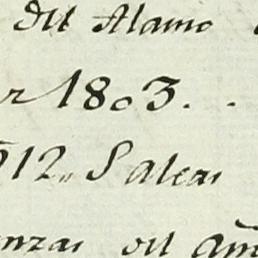 del Alamo
r 1803. .
912,, Salcas
nzas del